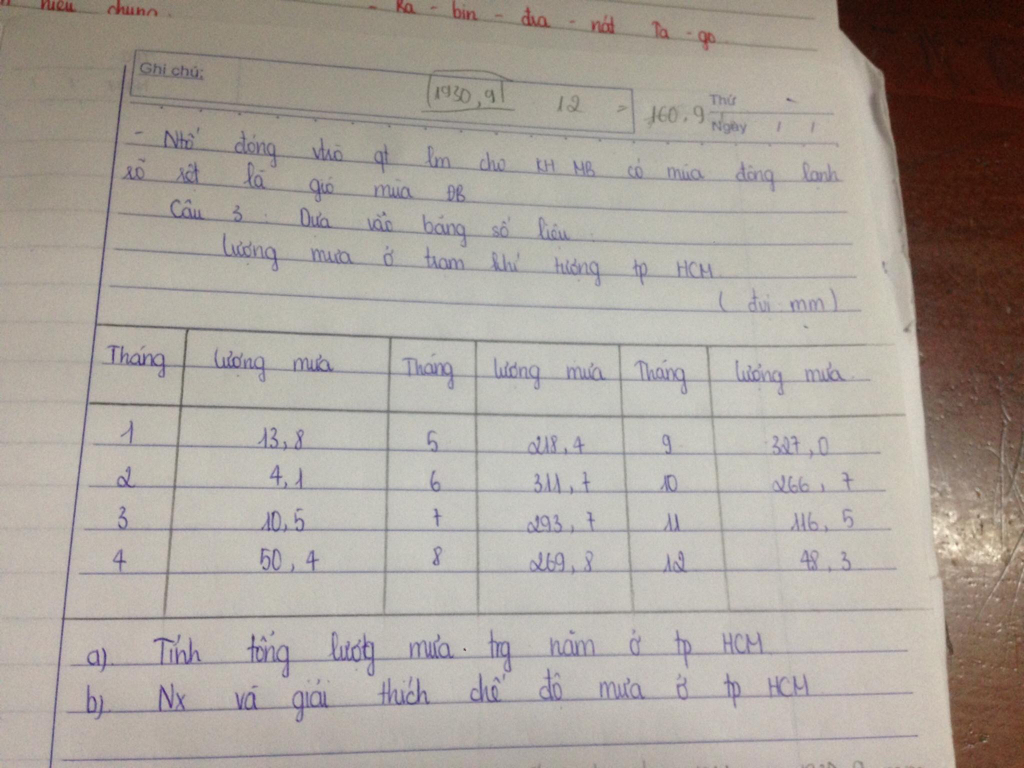 hiệu chung. - Ra - bin - đra - nát Ta - go
Ghi chú:
1930,9 12 = 160,9
Thứ
Ngày / /
- Nhố đóng vtrò qt lm cho KH MB có mùa đông lạnh
rõ rệt là gió mùa ĐB
Câu 3: Dựa vào bảng số liệu
lượng mưa ở trạm khí tượng tp HCM
( đvi mm)
Tháng lượng mưa Tháng lượng mưa Tháng lượng mưa
1 13,8 5 218,4 9 327,0
2 4,1 6 311,7 10 266,7
3 10,5 7 293,7 11 116,5
4 50,4 8 269,8 12 48,3
a) Tính tổng lượng mưa trg năm ở tp HCM
b) Nx và giải thích chế độ mưa ở tp HCM